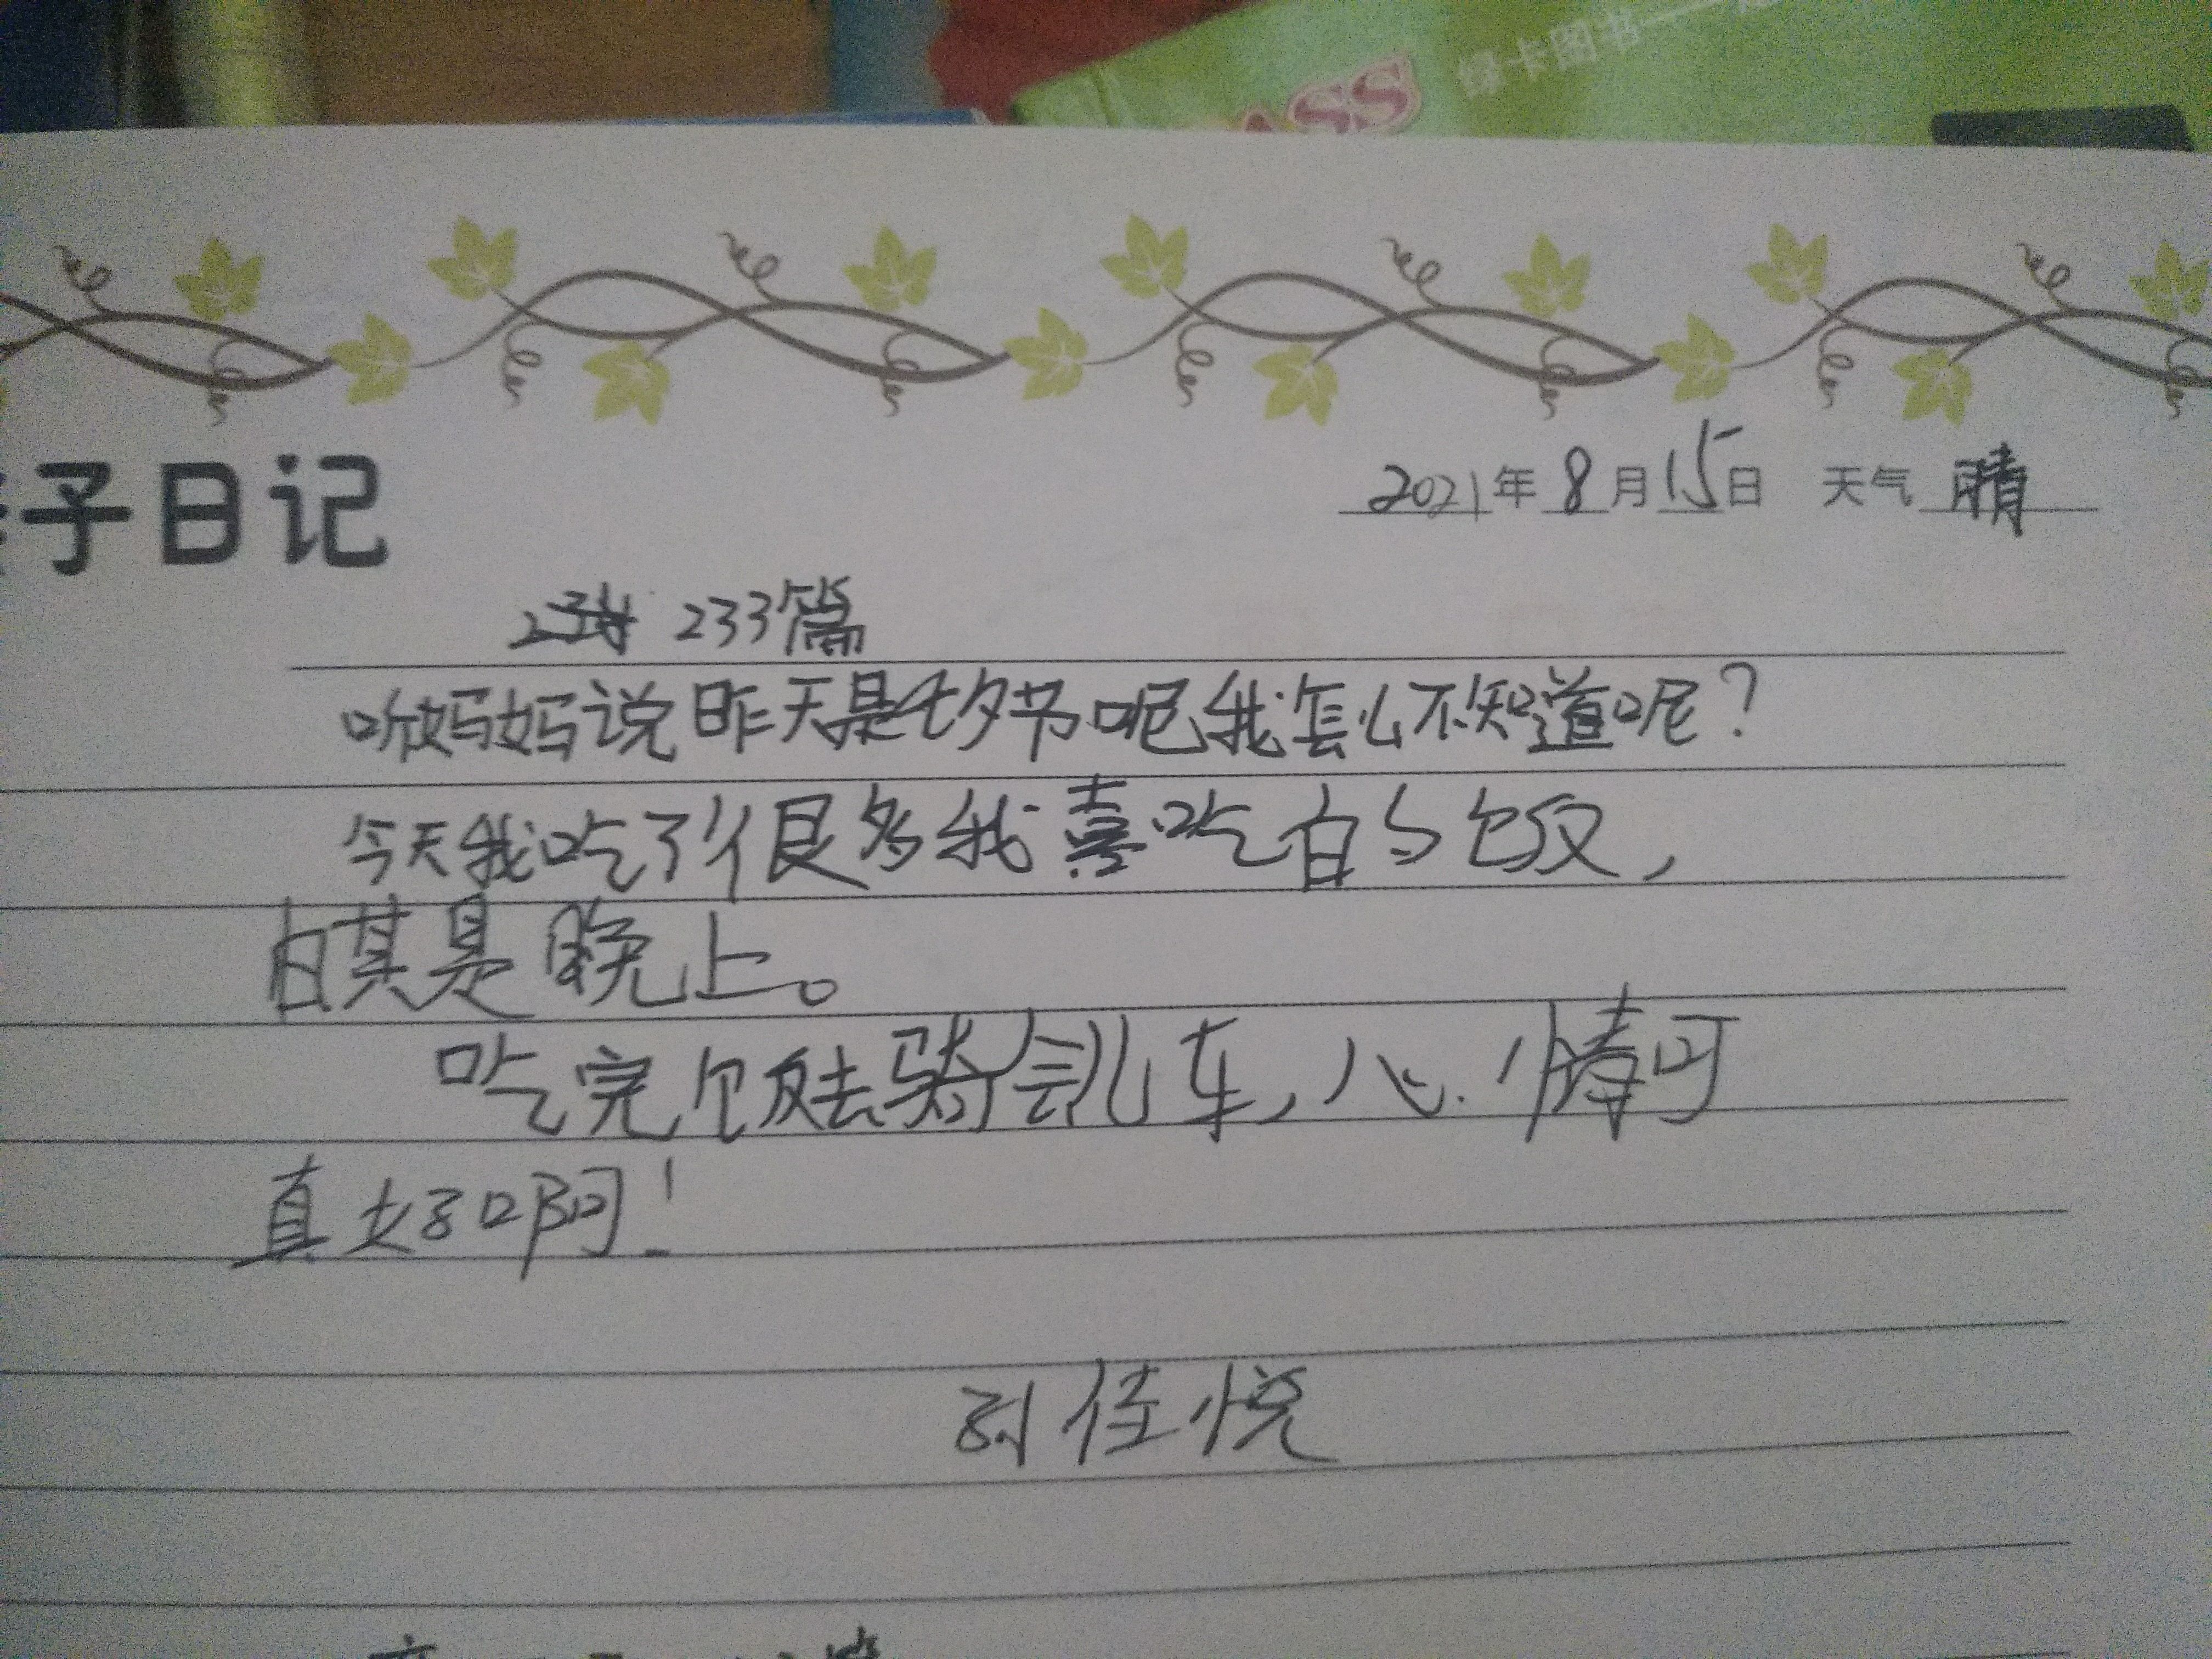 绿卡图书
ASS
子日记
2021年8月15日 天气 晴
233篇
听妈妈说昨天是七夕节呢我怎么不知道呢?
今天我吃了很多我喜吃的饭,
其是晚上。
吃完饭去骑会儿车,心情可
真好啊!
佳悦